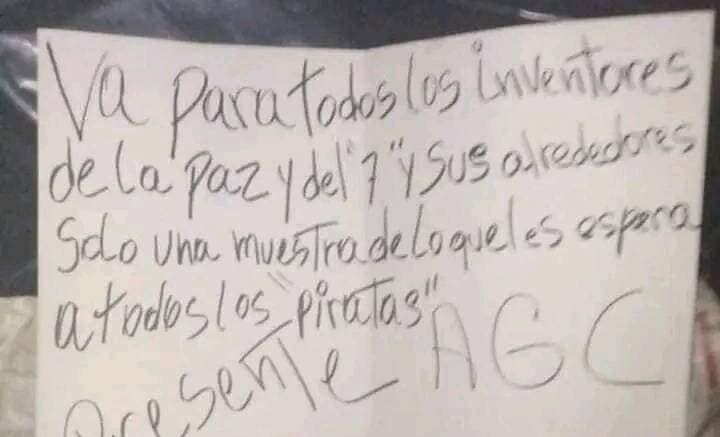 Va para todos los inventores
de la paz y del "7" y sus alrededores
Solo una muestra de lo que les espera
a todos los "piratas"
presente AGC